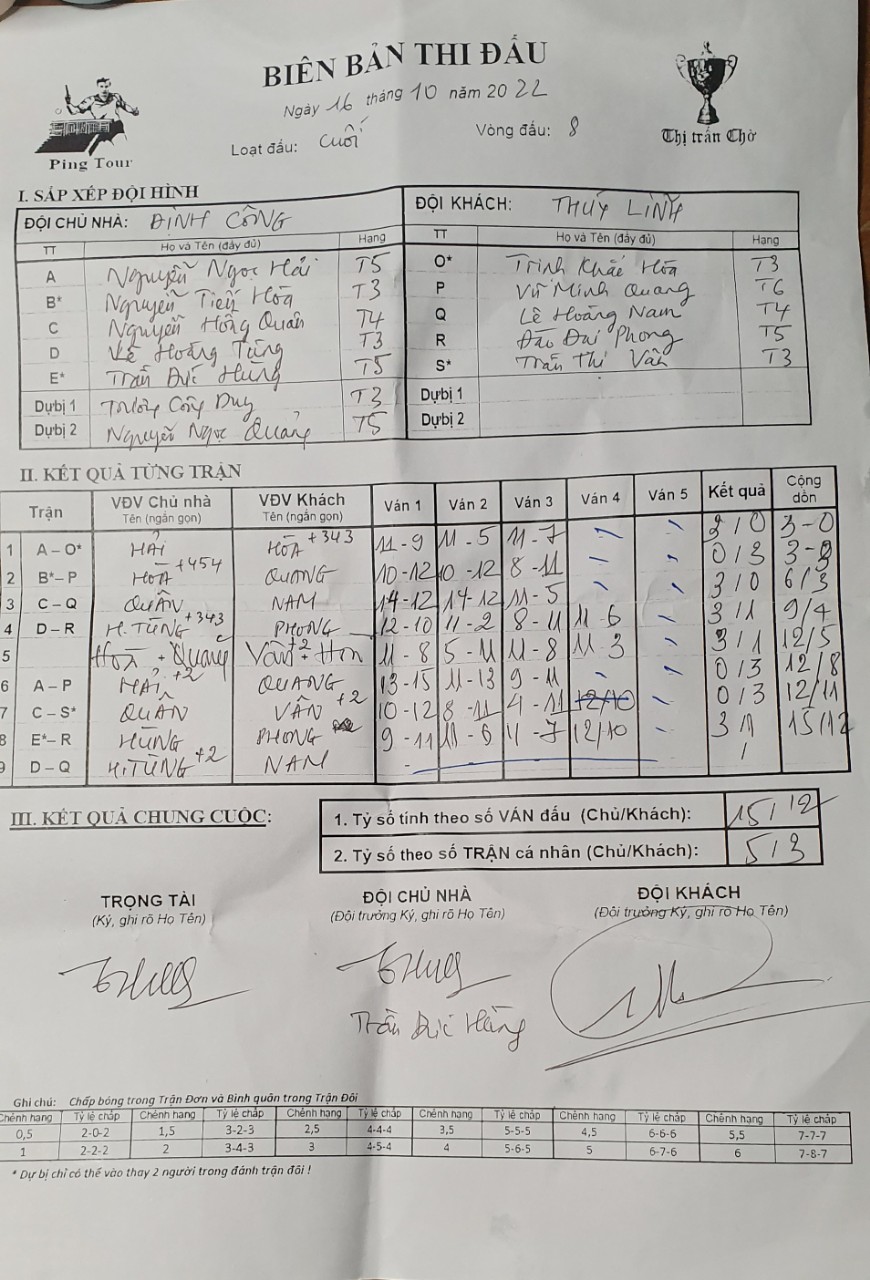 BIÊN BẢN THI ĐẤU
Ngày 16 tháng 10 năm 2022
Loạt đấu: Cuối Vòng đấu: 8
Ping Tour
Thị trấn Chờ
I. SẮP XẾP ĐỘI HÌNH
ĐỘI CHỦ NHÀ: ĐỊNH CÔNG ĐỘI KHÁCH: THÙY LINH
TT Họ và Tên (đầy đủ) Hạng TT Họ và Tên (đầy đủ) Hạng
A Nguyễn Ngọc Hải T5 O* Trịnh Khắc Hòa T3
B* Nguyễn Tiến Hòa T3 P Vũ Minh Quang T6
C Nguyễn Hồng Quân T4 Q Lê Hoàng Nam T4
D Hoàng Tùng T3 R Đào Đại Phong T5
E* Trần Đức Hùng T5 S* Trần Thị Vân T3
Dự bị 1 Trương Công Duy T3 Dự bị 1
Dự bị 2 Nguyễn Ngọc Quảng T5 Dự bị 2
II. KẾT QUẢ TỪNG TRẬN
Trận VĐV Chủ nhà Tên (ngắn gọn) VĐV Khách Tên (ngắn gọn) Ván 1 Ván 2 Ván 3 Ván 4 Ván 5 Kết quả Cộng dồn
1 A – O* HẢI HÒA +343 11 - 9 11 - 5 11 - 7 3/0 3-0
2 B* – P HOÀ +454 QUANG 10 - 12 10 - 12 8 - 11 0/3 3-3
3 C – Q QUÂN NAM 14 - 12 14 - 12 11 - 5 3/0 6/3
4 D – R H.TÙNG +343 PHONG 12 - 10 11 - 2 8 - 11 11 - 6 3/1 9/4
5 Hoà + Quang Vân +2 + Hòa 11 - 8 5 - 11 11 - 8 11 - 3 3/1 12/5
6 A – P HẢI +2 QUANG 13 - 15 11 - 13 9 - 11 0/3 12/8
7 C – S* QUÂN VÂN +2 10 - 12 8 - 11 4 - 11 12/10 0/3 12/11
8 E* – R HÙNG PHONG 9 - 11 11 - 6 - 7 12/10 3/1 15/12
9 D – Q H.TÙNG +2 NAM - /
III. KẾT QUẢ CHUNG CUỘC:
1. Tỷ số tính theo số VÁN đấu (Chủ/Khách): 15/12
2. Tỷ số theo số TRẬN cá nhân (Chủ/Khách): 5/3
TRỌNG TÀI ĐỘI CHỦ NHÀ ĐỘI KHÁCH
(Ký, ghi rõ Họ Tên) (Đội trưởng Ký, ghi rõ Họ Tên) (Đội trưởng Ký, ghi rõ Họ Tên)
Trần Đức Hùng
Ghi chú: Chấp bóng trong Trận Đơn và Bình quân trong Trận Đôi
Chênh hạng Tỷ lệ chấp Chênh hạng Tỷ lệ chấp Chênh hạng Tỷ lệ chấp Chênh hạng Tỷ lệ chấp Chênh hạng Tỷ lệ chấp Chênh hạng Tỷ lệ chấp
0,5 2-0-2 1,5 3-2-3 2,5 4-4-4 3,5 5-5-5 4,5 6-6-6 5,5 7-7-7
1 2-2-2 2 3-4-3 3 4-5-4 4 5-6-5 5 6-7-6 6 7-8-7
* Dự bị chỉ có thể vào thay 2 người trong đánh trận đôi !